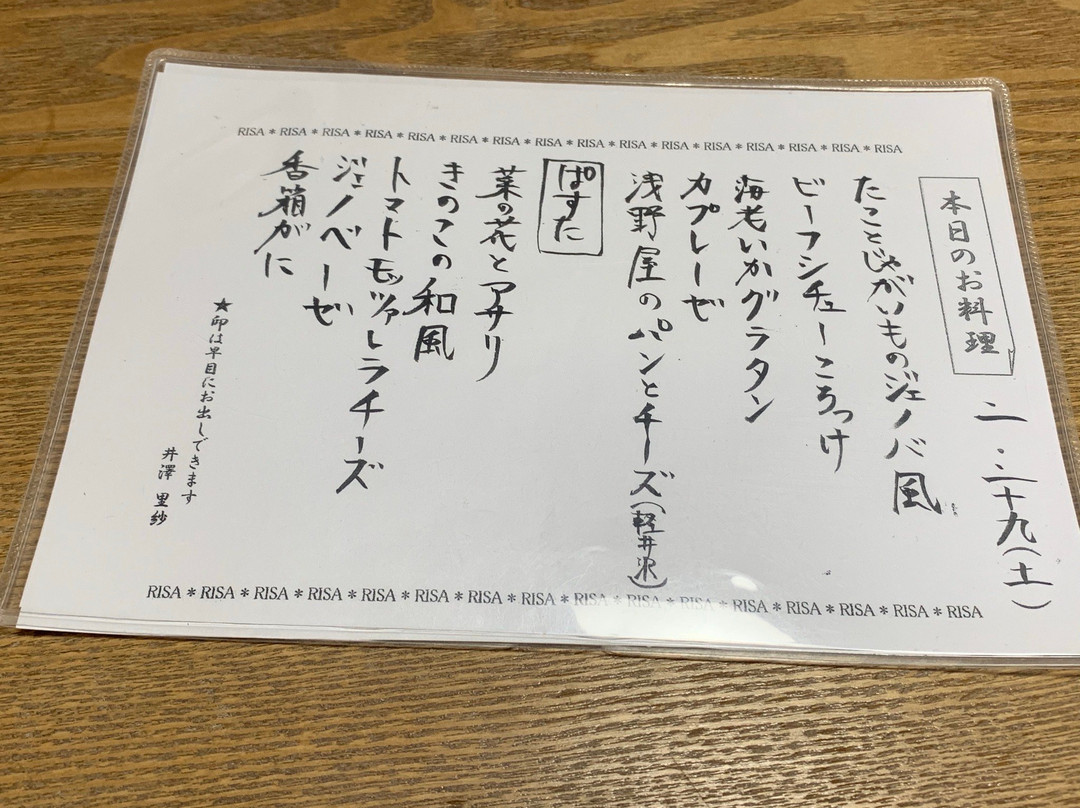 RISA＊RISA＊RISA＊RISA＊RISA＊RISA＊RISA＊RISA＊RISA＊RISA＊RISA＊RISA＊RISA＊RISA＊RISA＊RISA
本日のお料理
二・二十九（土）
たことじゃがいものジェノバ風
ビーフシチューころっけ
海老いかグラタン
カプレーゼ
浅野屋のパンとチーズ（軽井沢）
ぱすた
菜の花とアサリ
きのこの和風
トマトモッツァレラチーズ
ジェノベーゼ
香箱がに
★印は早目にお出しできます
井澤 里紗
RISA＊RISA＊RISA＊RISA＊RISA＊RISA＊RISA＊RISA＊RISA＊RISA＊RISA＊RISA＊RISA＊RISA＊RISA＊RISA